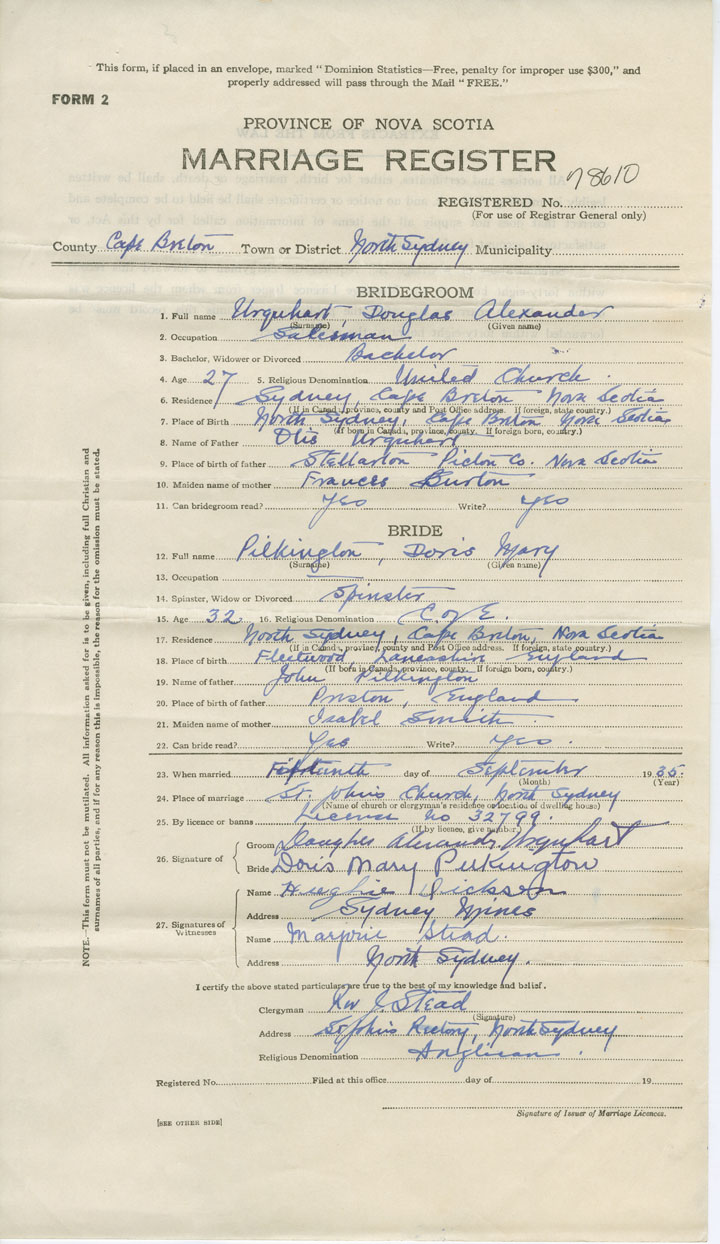 This form, if placed in an envelope, marked "Dominion Statistics—Free, penalty for improper use $300," and
properly addressed will pass through the Mail "FREE."
FORM 2
PROVINCE OF NOVA SCOTIA
MARRIAGE REGISTER
78610
REGISTERED No.
(For use of Registrar General only)
County Cape Breton Town or District North Sydney Municipality
BRIDEGROOM
1. Full name Urquhart, Douglas Alexander
(Surname) (Given name)
2. Occupation Salesman
3. Bachelor, Widower or Divorced Bachelor
4. Age 27 5. Religious Denomination United Church.
6. Residence Sydney, Cape Breton Nova Scotia
(If in Canada, province, county and Post Office address. If foreign, state country.)
7. Place of Birth North Sydney, Cape Breton Nova Scotia
(If born in Canada, province, county. If foreign born, country.)
8. Name of Father Otis Urquhart
9. Place of birth of father Stellarton Pictou Co. Nova Scotia
10. Maiden name of mother Frances Burton
11. Can bridegroom read? Yes Write? Yes
BRIDE
12. Full name Pilkington, Doris Mary
(Surname) (Given name)
13. Occupation
14. Spinster, Widow or Divorced Spinster
15. Age 32 16. Religious Denomination C. of E.
17. Residence North Sydney, Cape Breton, Nova Scotia
(If in Canada, province, county and Post Office address. If foreign, state country.)
18. Place of birth Fleetwood, Lancashire England
(If born in Canada, province, county. If foreign born, country.)
19. Name of father John Pilkington
20. Place of birth of father Preston, England
21. Maiden name of mother Isabel Smith.
22. Can bride read? Yes Write? Yes.
23. When married Fifteenth day of September 1935.
(Month) (Year)
24. Place of marriage St. John's Church, North Sydney
(Name of church or clergyman's residence or location of dwelling house)
25. By licence or banns License no 32799.
(If by licence, give number.)
26. Signature of
Groom Douglas Alexander Urquhart
Bride Doris Mary Pilkington
27. Signatures of Witnesses
Name Hughie Dickson
Address Sydney Mines
Name Marjorie Stead.
Address North Sydney.
I certify the above stated particulars are true to the best of my knowledge and belief.
Clergyman Rev J. Stead
(Signature)
Address St John's Rectory, North Sydney
Religious Denomination Anglican.
Registered No. Filed at this office day of 19
Signature of Issuer of Marriage Licences.
[SEE OTHER SIDE]
NOTE.—This form must not be mutilated. All information asked for is to be given, including full Christian and
surnames of all parties, and if for any reason this is impossible, the reason for the omission must be stated.